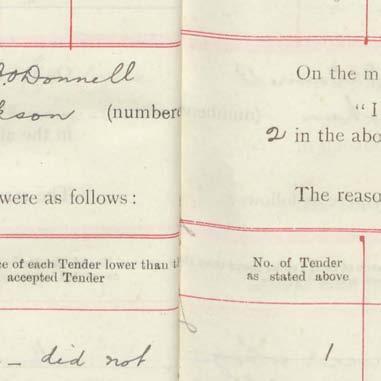 O'Donnell
(number
were as follows:
ce of each Tender lower than t
accepted Tender
– did not
On the m
"I
2 in the abo
The reaso
No. of Tender
as stated above
1